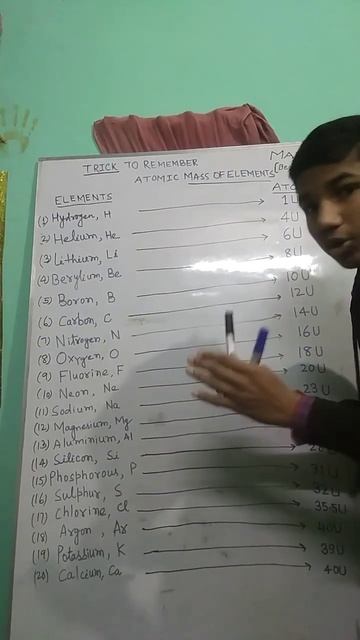 TRICK TO REMEMBER
ATOMIC MASS OF ELEMENTS
ELEMENTS
(1) Hydrogen, H 1U
2) Helium, He 4U
(3) Lithium, Li 6U
(4) Berylium, Be 8U
(5) Boron, B 10U
(6) Carbon, C 12U
(7) Nitrogen, N 14U
(8) Oxygen, O 16U
(9) Fluorine, F 18U
(10) Neon, Ne 20U
(11) Sodium, Na 23U
(12) Magnesium, Mg
(13) Aluminium, Al
(14) Silicon, Si
(15) Phosphorous, P 31U
(16) Sulphur, S 32U
(17) Chlorine, Cl 35.5U
(18) Argon, Ar 40U
(19) Potassium, K 39U
(20) Calcium, Ca 40U